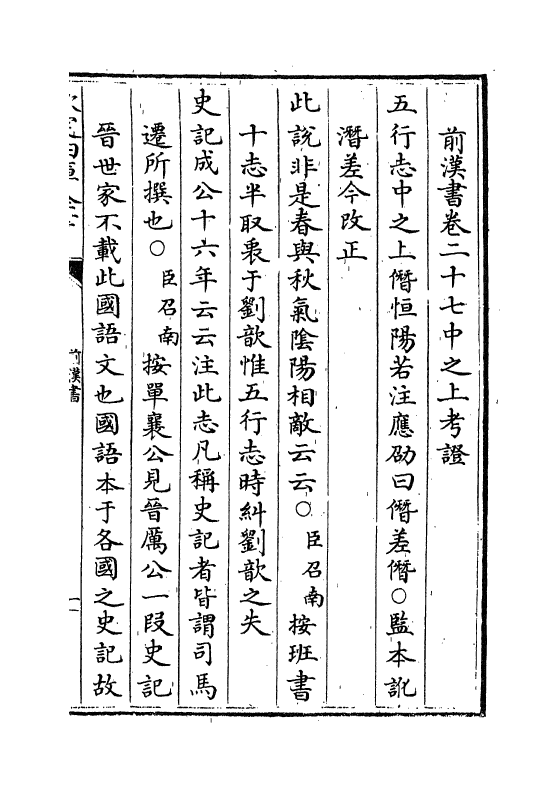 前漢書卷二十七中之上考證
五行志中之上僭恒陽若注應劭曰僭差僭○監本訛
潛差今改正
此說非是春與秋氣陰陽相敵云云○臣召南按班書
十志半取裁于劉歆惟五行志時糾劉歆之失
史記成公十六年云云注此志凡稱史記者皆謂司馬
遷所撰也○臣召南按單襄公見晉厲公一段史記
晉世家不載此國語文也國語本于各國之史記故
前漢書